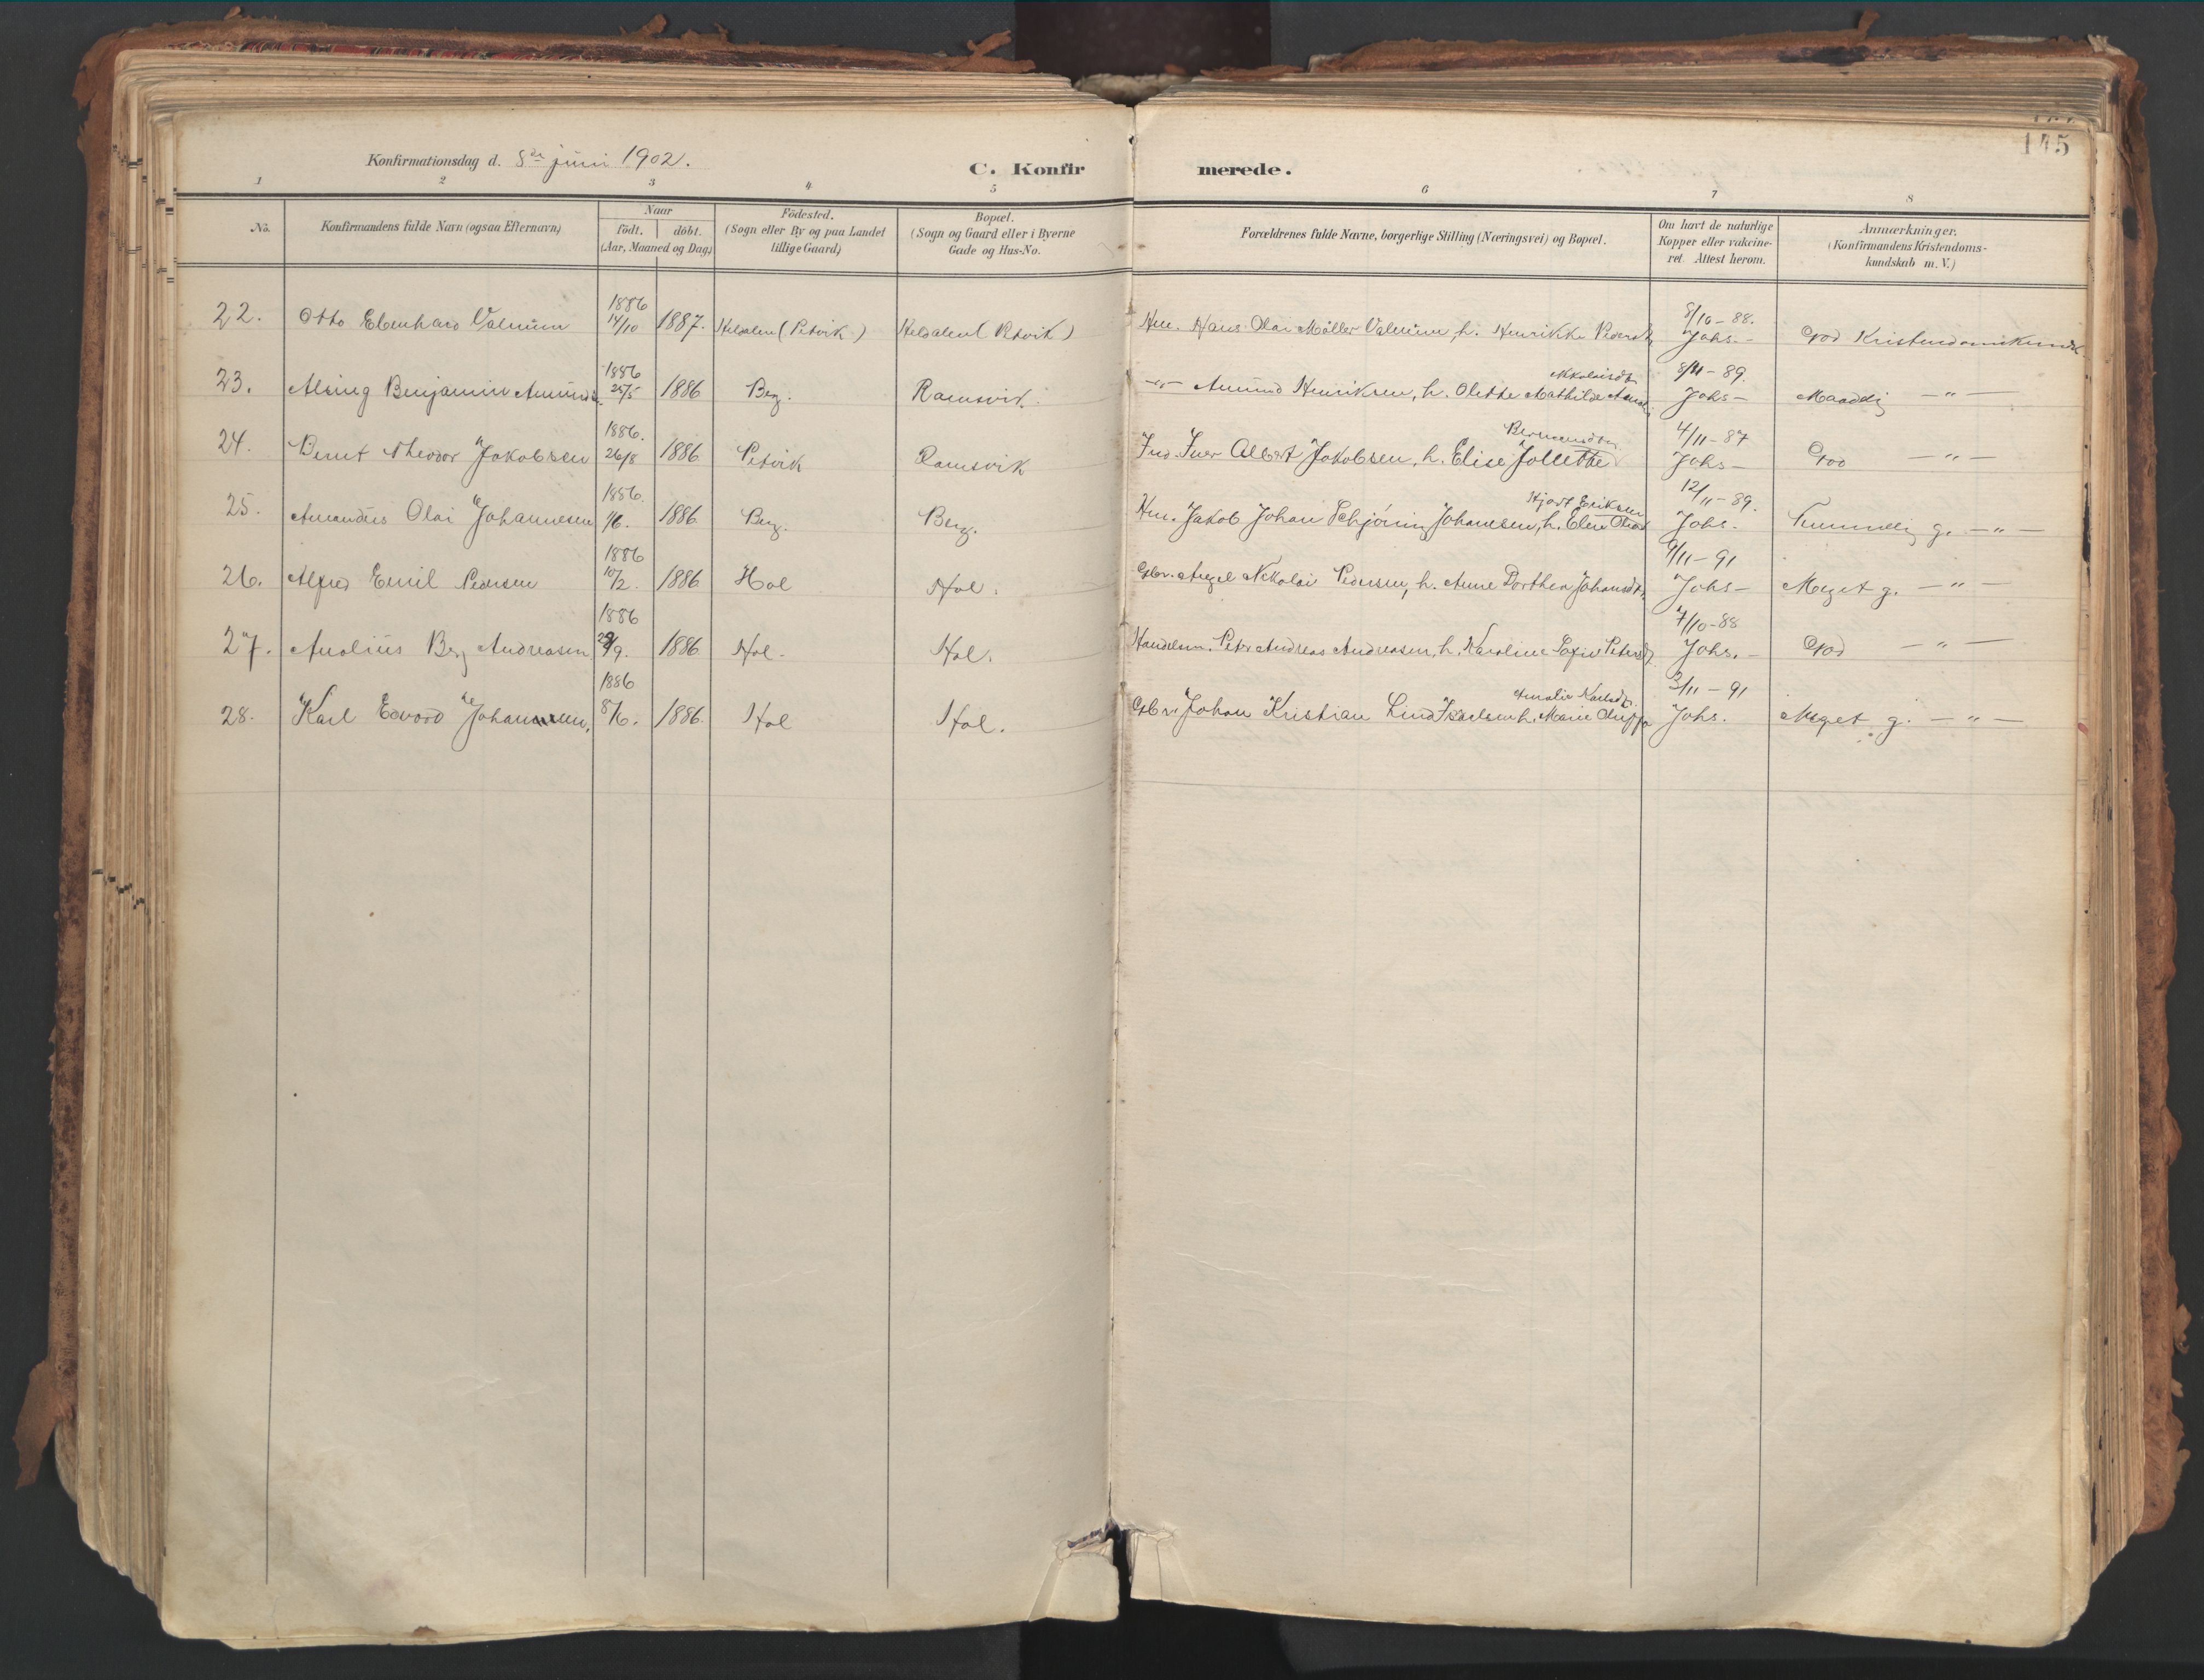 145
Konfirmationsdag d. 8de juni 1902.
C. Konfir merede.
1 2 3 4 5 6 7 8
No.
Konfirmandens fulde Navn (ogsaa Efternavn)
Naar
födt. döbt.
(Aar, Maaned og Dag)
Födested.
(Sogn eller By og paa Landet
tillige Gaard)
Bopæl.
(Sogn og Gaard eller i Byerne
Gade og Hus-No.
Forældrenes fulde Navne, borgerlige Stilling (Næringsvei) og Bopæl.
Om havt de naturlige
Kopper eller vakcine-
ret. Attest herom.
Anmærkninger.
(Konfirmandens Kristendoms-
kundskab m. V.)
1886 8/10-88.
22. Otto Ebenhard Valnum 14/10 1887. (Petvik) (Petvik) Hans Olai Möller Valnum, h. Henrikke Johs.- God Kristendomskundsk.
1886 Nikolaisdtr. 8/11-89.
23. Alsing Benjamin 25/5 1886 Berg. Ramsvik. -"- Amund Henriksen, h. Olette Mathilde Johs- Maadelig -"-
1886. 4/11-87
24. Bernt Theodor Jakobsen 26/8 1886 Petvik Ramsvik Albert Jakobsen, h. Elise Johs- God -"-
1886. Hjort Eriksen 12/11-89.
25. Amandus Olai Johannesen 1/6. 1886 Berg. Berg. Jakob Johan Schjöning Johannesen, h. Johs. Temmelig g. -"-
1886 9/11-91
26. Alfred Emil Pedersen 10/2. 1886 Hol Hol. Gbr. Nikolai Pedersen, h. Anne Dorthea Johansdtr. Johs- Meget g. -"-
1886 7/10-88
27. Berg Andreasen 29/9. 1886 Hol. Hol. Handelsm. Peter Andreas Andreasen, h. Karoline Johs.- God -"-
1886 Amalie 3/11-91
28. Karl Edvard Johannesen, 8/6. 1886. Hol Hol. Gbr. Johan Kristian Lind h. Marie Johs. Meget g. -"-